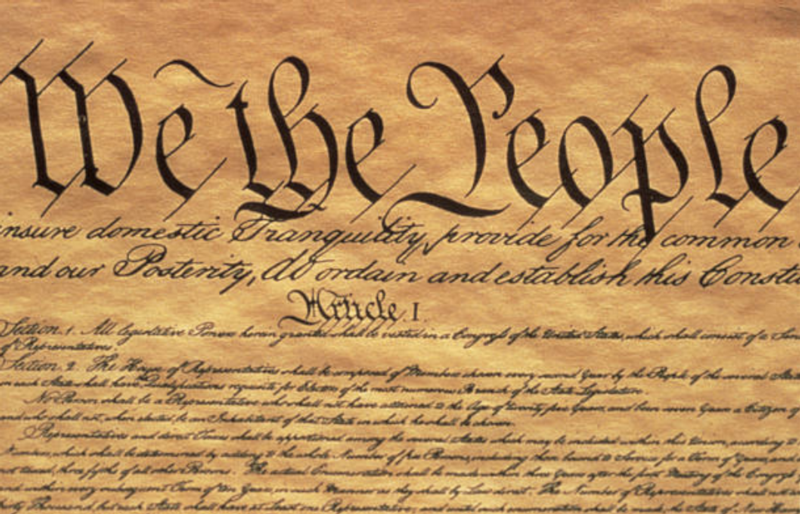 We the People
insure domestic Tranquility, provide for the common
and our Posterity, do ordain and establish this Constit
Article. I.
Section. 1. All legislative Powers herein granted shall be vested in a Congress of the United States, which shall consist of a Sen
of Representatives.
Section. 2. The House of Representatives shall be composed of Members chosen every second Year by the People of the several Stat
in each State shall have Qualifications requisite for Electors of the most numerous Branch of the State Legislature.
No Person shall be a Representative who shall not have attained to the Age of twenty five Years, and been seven Years a Citizen of
and who shall not, when elected, be an Inhabitant of that State in which he shall be chosen.
Representatives and direct Taxes shall be apportioned among the several States which may be included within this Union, according to
Numbers, which shall be determined by adding to the whole Number of free Persons, including those bound to Service for a Term of Years, and
not taxed, three fifths of all other Persons. The actual Enumeration shall be made within three Years after the first Meeting of the Congress
and within every subsequent Term of ten Years, in such Manner as they shall by Law direct. The Number of Representatives shall not
thirty Thousand, but each State shall have at Least one Representative; and until such enumeration shall be made, the State of New Ham